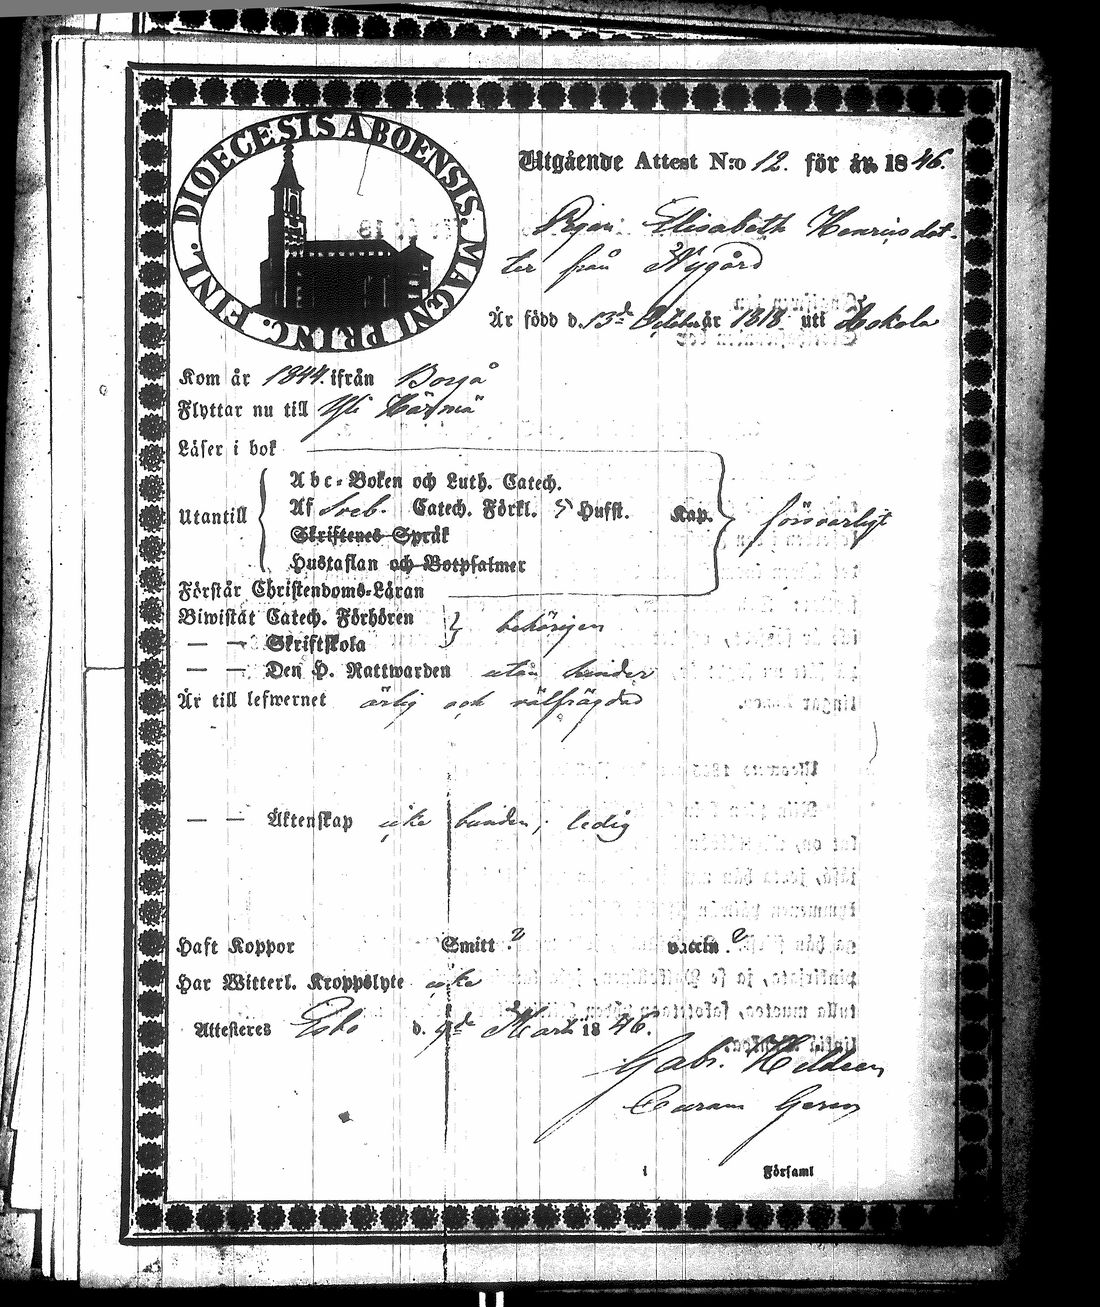 DIOECESIS ABOENSIS. MAGNI PRINC. FINL.
Utgående Attest N:o 12. för år 1846.
Pigan Elisabeth Henricsdot-
ter från Nygård
Är född d. 13de October år 1818 uti Askola
Kom år 1844. ifrån Borgå
Flyttar nu till Yli Härmä
Läser i bok
Utantill
Abc-Boken och Luth. Catech.
Af Sveb. Catech. Förkl. 5 Hufst. Kap. försvarligt
Skriftenes Språk
Hustaflan och Botpsalmer
Förstår Christendoms-Läran
Biwistat Catech. Förhören
— — Skriftskola
behörigen
— — Den H. Nattwarden utan hinder
Är till lefwernet ärlig och välfrägdad
— — Äktenskap icke bunden, ledig
Haft Koppor Smitt ? vaccin. ?
Har Witterl. Kroppslyte icke
Attesteres Esbo d. 9de Mart. 1846.
Gabr.
Curam Gerens
i Församl